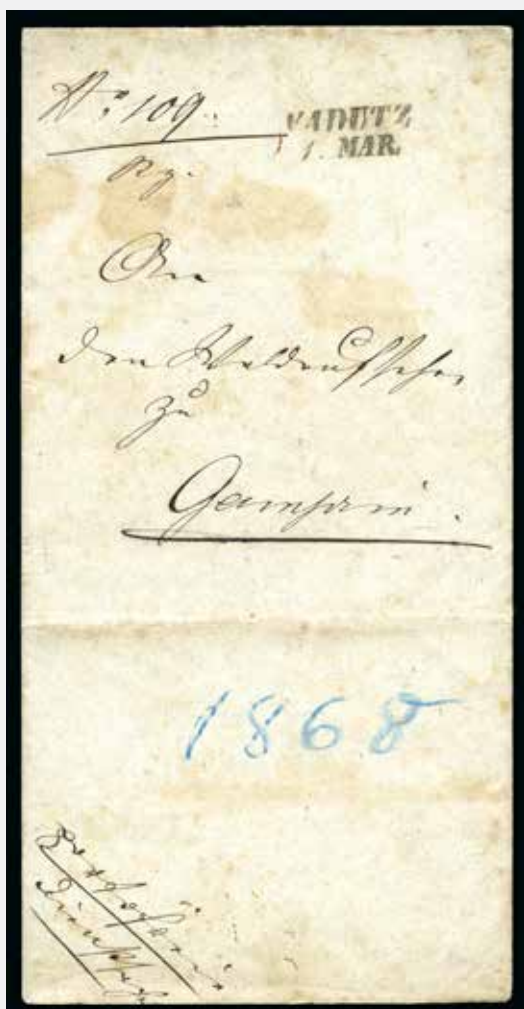 No 109.
VADUTZ
1. MAR.
An
den Waldaufseher
zu
Gamprin.
1868